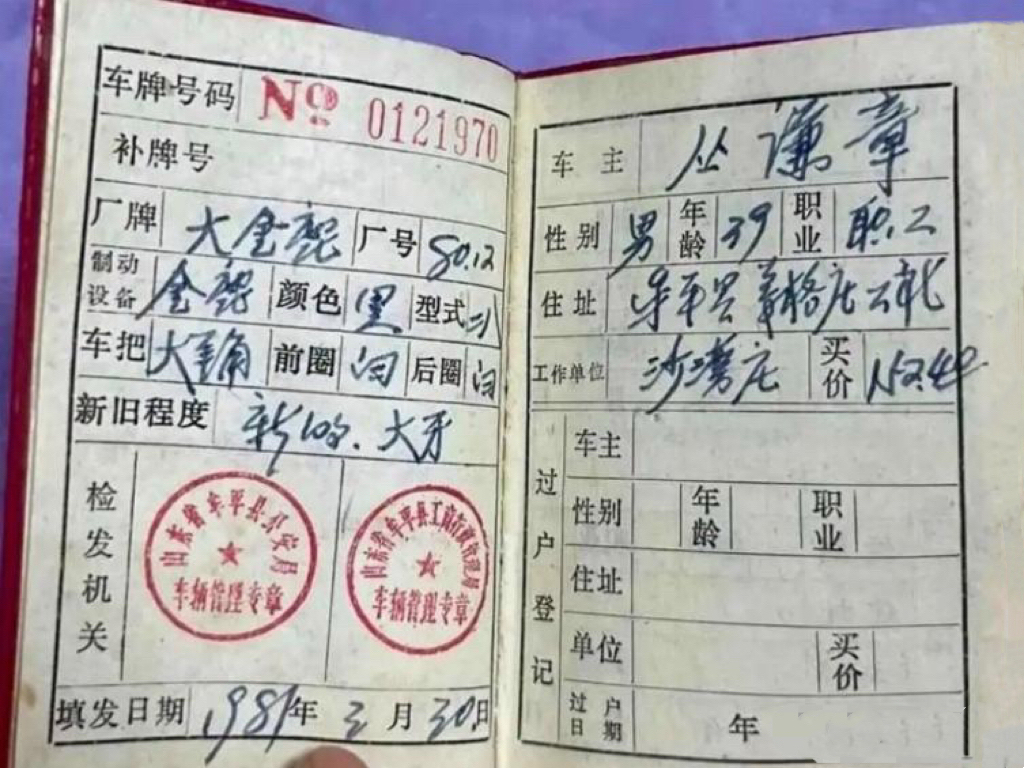 车牌号码 № 0121970
补牌号
厂牌 大金鹿 厂号 80.12
制动设备 金鹿 颜色 黑 型式 二八
车把 大 前圈 白 后圈 白
新旧程度 新 大牙
检发机关
山东省牟平县公安局
车辆管理专章
山东省牟平县工商行政管理局
车辆管理专章
填发日期 1981年 3月 30日
车主 丛谦章
性别 男 年龄 39 职业 职工
住址 牟平县 格庄
工作单位 沙 庄 买价
过户登记
车主
性别 年龄 职业
住址
单位 买价
过户日期 年